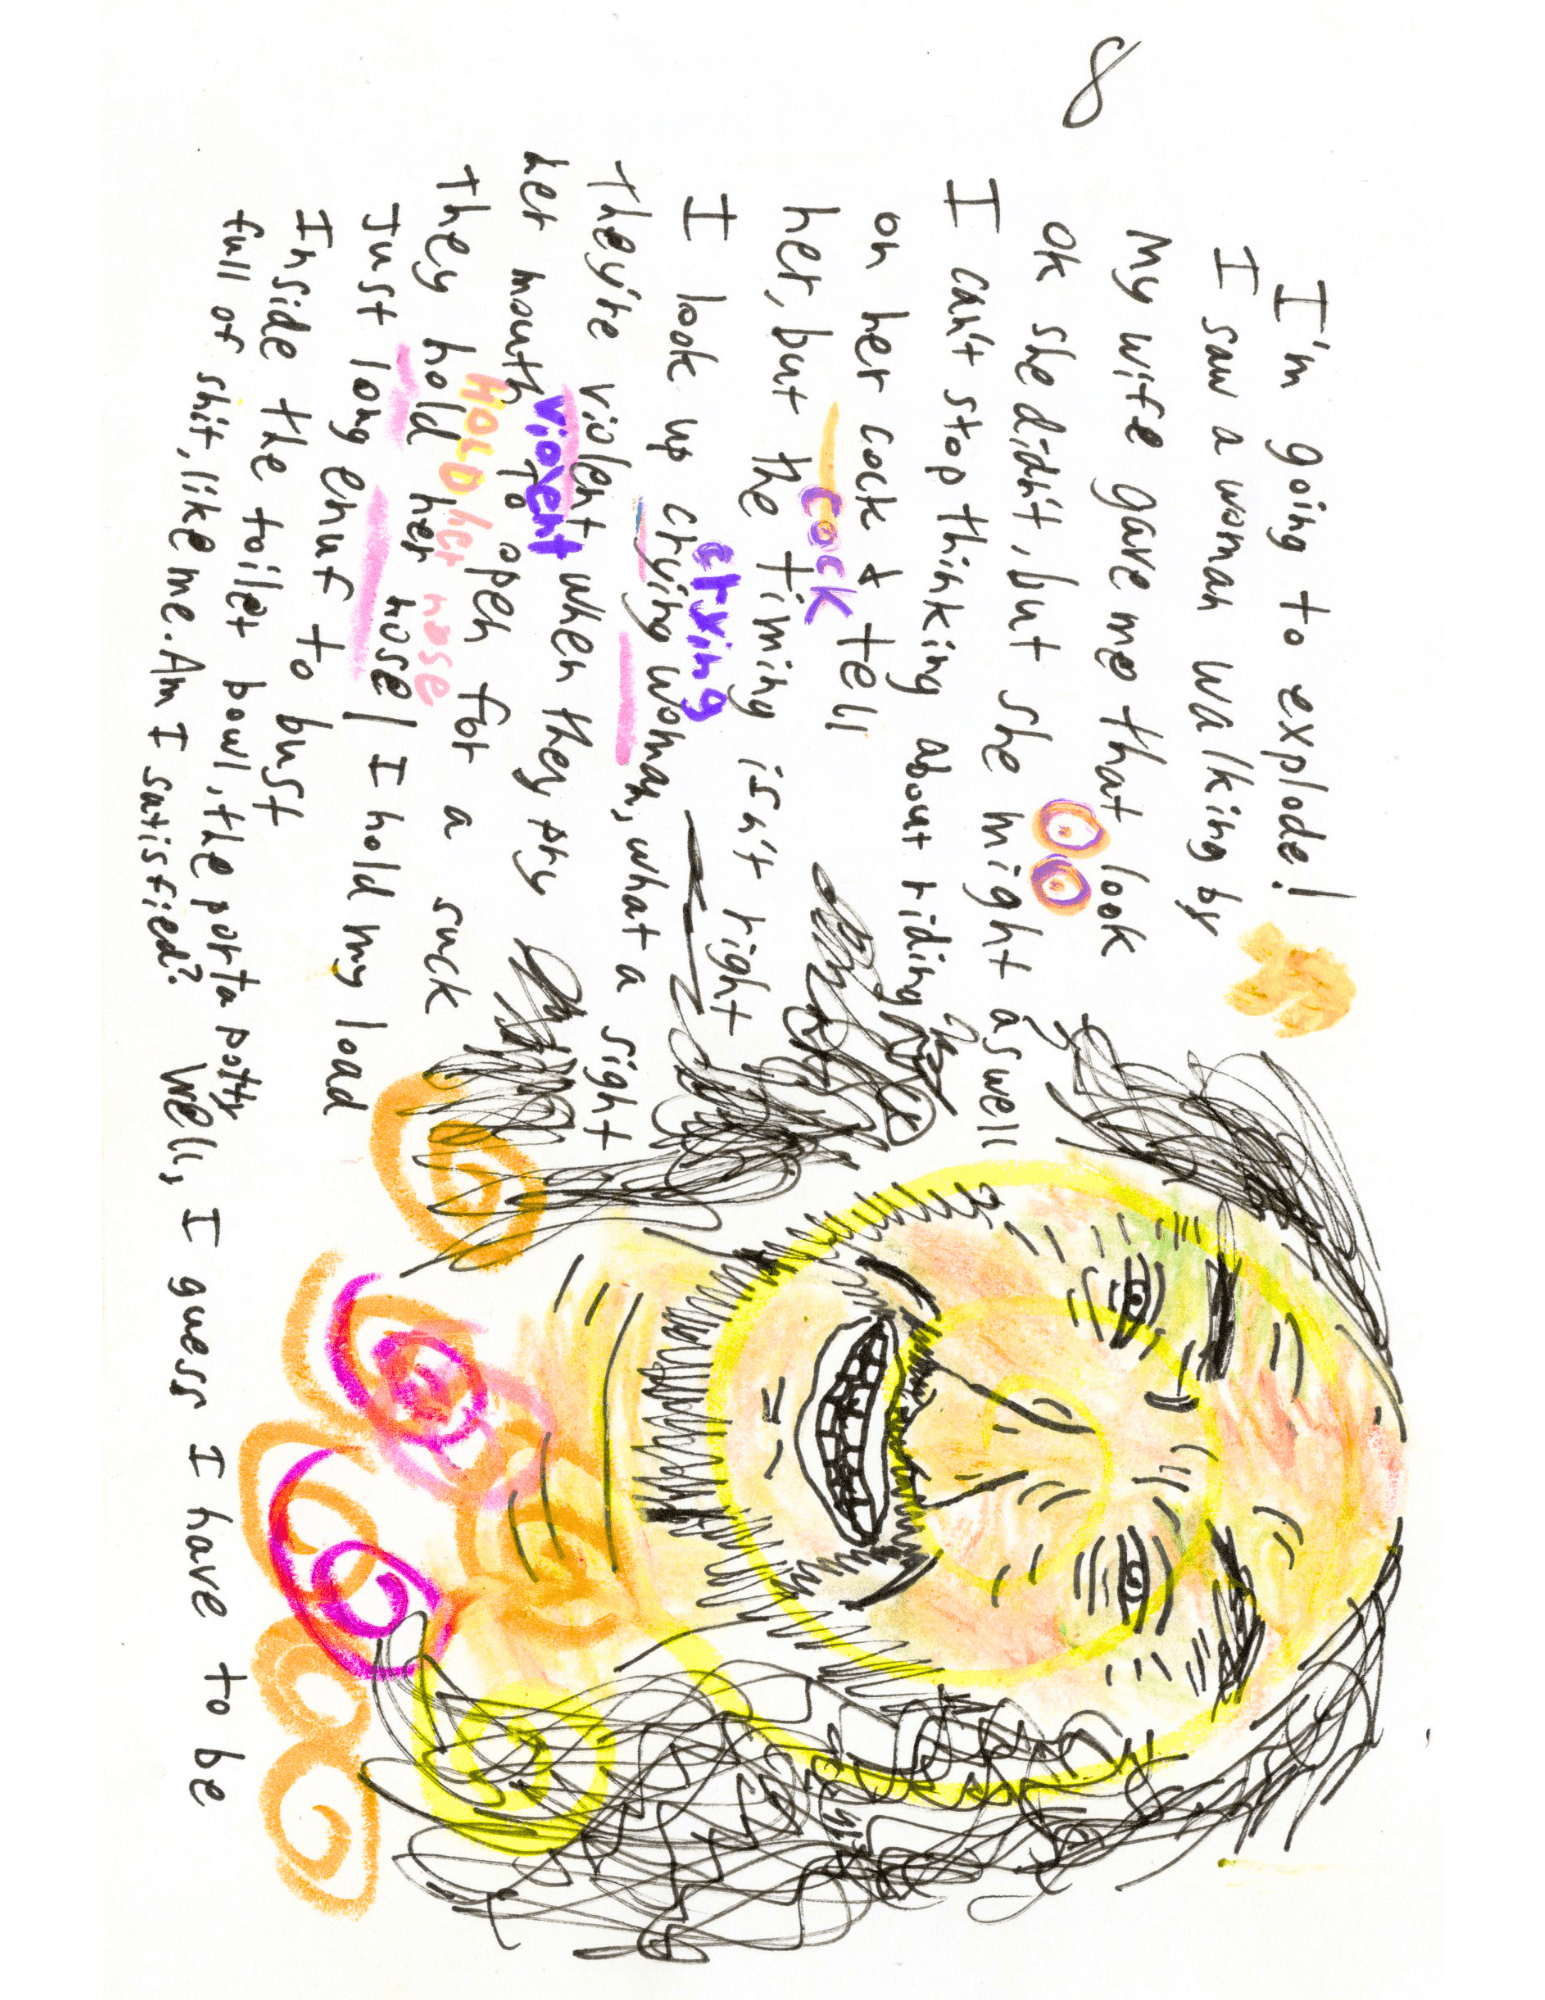 8
I'm going to explode!
I saw a woman walking by
My wife gave me that look
ok she didn't, but she might aswell
I can't stop thinking about riding
on her cock & tell
her, but the timing isn't right
cock
I look up crying woman, what a sight
crying
They're violent when they pry
violent
her mouth to open for a suck
They hold her nose / I hold my load
HOLD her nose
Just long enuf to bust
Inside the toilet bowl, the porta potty
full of shit, like me. Am I satisfied? Well, I guess I have to be